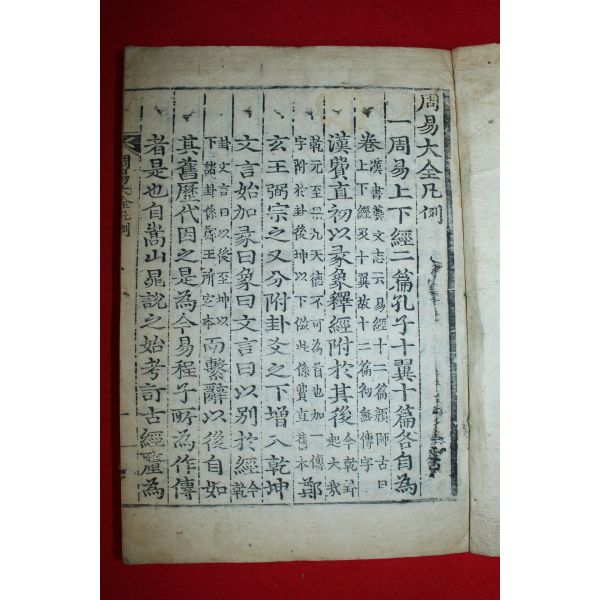 周易大全凡例
一周易上下經二篇孔子十翼十篇各自為
卷漢書藝文志云易經十二篇顏師古曰
上下經及十翼故十二篇初無傳字
漢費直初以彖象釋經附於其後今乾卦
起大哉
乾元至用九天德不可為首也加一傳
字附於卦後坤以下倣此係費直舊本鄭
玄王弼宗之又分附卦爻之下增入乾坤
文言始加彖曰象曰文言曰以別於經今乾
卦文言曰以後至坤以
下諸卦係鄭王所定本而繫辭以後自如
其舊歷代因之是為今易程子所為作傳
者是也自嵩山晁說之始考訂古經釐為
周易大全凡例
一